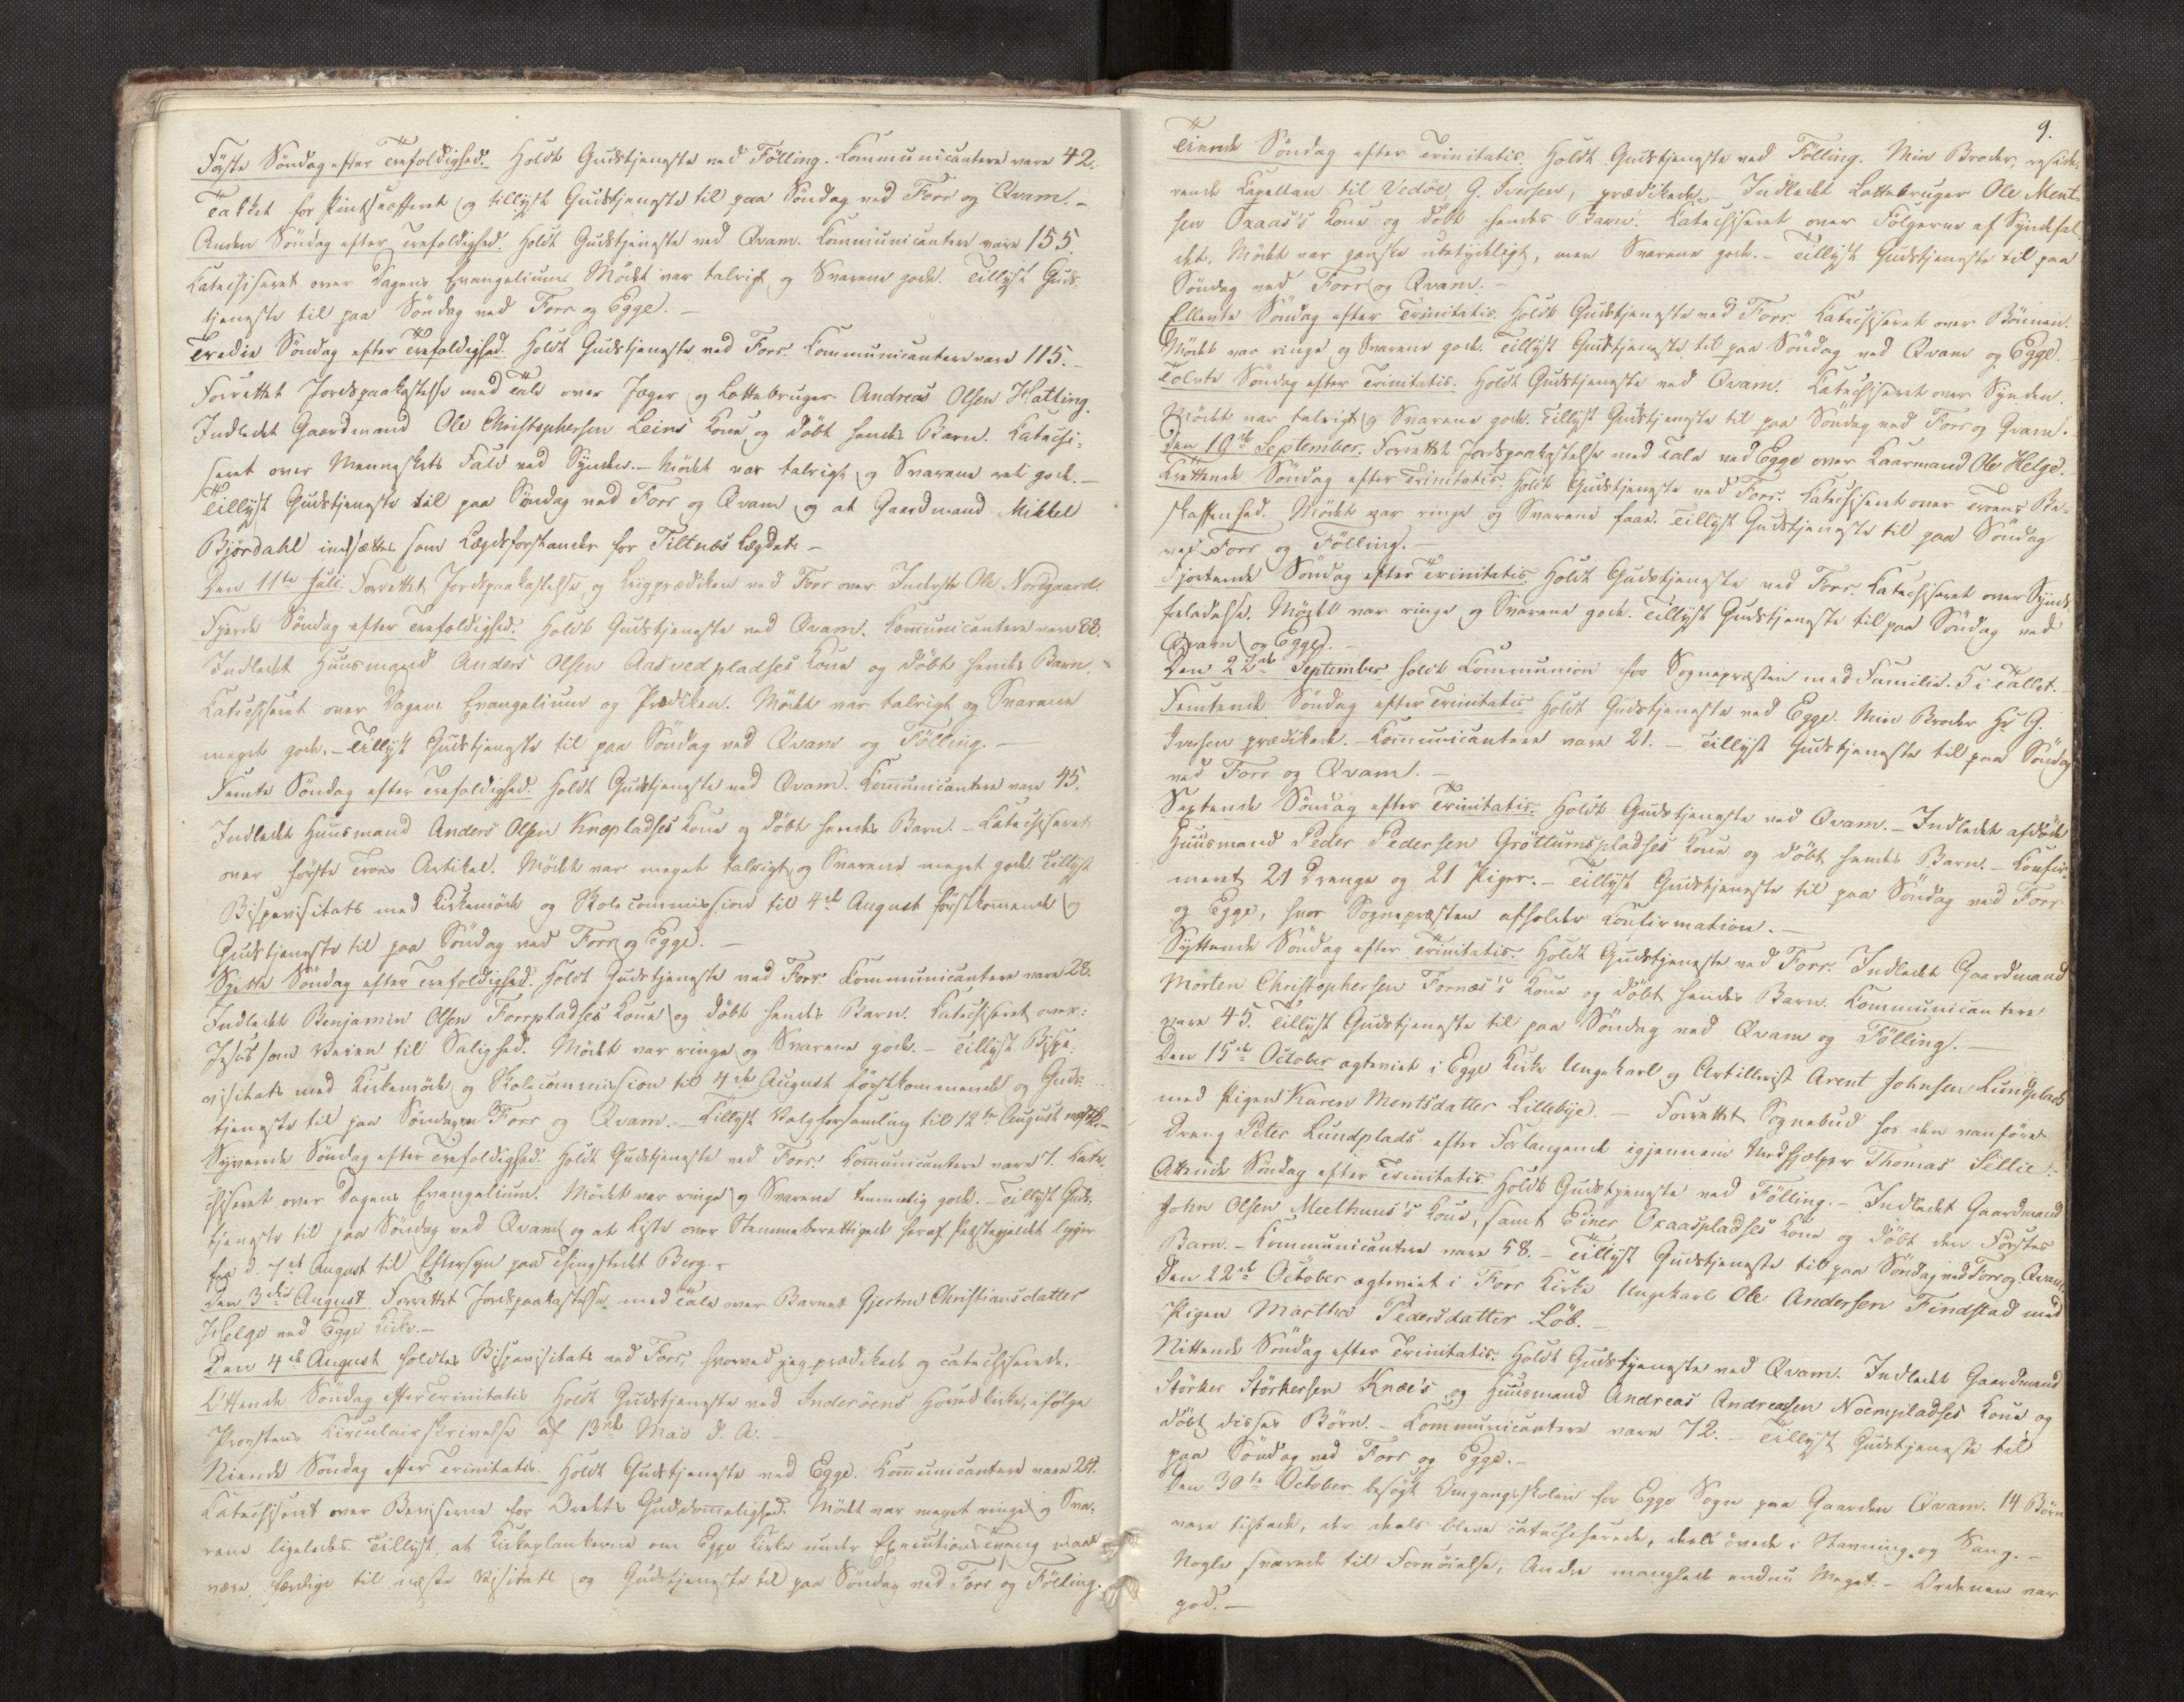 Förste Söndag efter Trefoldighed. Holdt Gudstjeneste ved Fölling. Communicantere vare 42.
Takket for Pintseofferet og tillyst Gudstjeneste til paa Söndag ved Forr og Qvam. –
Anden Söndag efter Trefoldighed. Holdt Gudstjeneste ved Qvam. Communicantere vare 155.
Katechiseret over Dagens Evangelium. Mödet var talrigt og Svarene gode. Tillyst Guds-
tjeneste til paa Söndag ved Forr og Egge. –
Tredie Söndag efter Trefoldighed. Holdt Gudstjeneste ved Forr. Communicantere vare 115. –
Forrettet Jordspaakastelse med Tale over Jæger og Lottebruger Andreas Olsen Hatling.
Indledet Gaardmand Ole Christophersen Leins Kone og döbt hendes Barn. Katechi-
seret over Menneskets Fald ved Synden. – Mödet var talrigt og Svarene ret gode. –
Tillyst Gudstjeneste til paa Söndag ved Forr og Qvam og at Gaardmand Mikkel
Björdahl indsættes som Lægdsforstander for Tiltnæs Lægdet. –
Den 11te Juli. Forrettet Jordspaakastelse og Liigprædiken ved Forr over Inderste Ole Nordgaard.
Fjerde Söndag efter Trefoldighed. Holdt Gudstjeneste ved Qvam. Kommunicantere vare 88.
Indledet Huusmand Anders Olsen Aasvedpladses Kone og döbt hendes Barn. –
Katechiseret over Dagens Evangelium og Prædiken. Mödet var talrigt og Svarene
meget gode. – Tillyst Gudstjeneste til paa Söndag ved Qvam og Fölling. –
Femte Söndag efter Trefoldighed. Holdt Gudstjeneste ved Qvam. Kommunicantere vare 45.
Indledet Huusmand Anders Olsen Knopladses Kone og döbt hendes Barn. – Katechiseret
over förste Troes Artikel. Mödet var meget talrigt og Svarene meget gode. Tillyst
Bispevisitats med Kirkemöde og Skolecommission til 4de August förstkommende og
Gudstjeneste til paa Söndag ved Forr og Egge. –
Sjette Söndag efter Trefoldighed. Holdt Gudstjeneste ved Forr. Kommunicantere vare 28.
Indledet Benjamin Olsen Forrpladses Kone og döbt hendes Barn. Katechiseret over:
Jesus som Veien til Salighed. Mödet var ringe og Svarene gode. – Tillyst Bispe-
visitats med Kirkemöde og Skolecommission til 4de August förstkommende og Guds-
tjeneste til paa Söndagen Forr og Qvam. – Tillyst Valgforsamling til 12te August næstk. –
Syvende Söndag efter Trefoldighed. Holdt Gudstjeneste ved Forr. Kommunicantere vare 7. Kate-
chiseret over Dagens Evangelium. Mödet var ringe og Svarene temmelig gode. – Tillyst Guds-
tjeneste til paa Söndag ved Qvam og at Liste over Stemmeberettigede heraf Præstegjeldet ligger
fra d. 7de August til Eftersyn paa Thingstedet Berg. –
Den 3die August. Forrettet Jordspaakastelse med Tale over Barnet Gjertru Christiansdatter
Helge ved Egge Kirke. –
Den 4de August holdtes Bispevisitats ved Forr, hvorved jeg prædikede og catechiserede.
Ottende Söndag efter Trinitatis. Holdt Gudstjeneste ved Inderöens Hovedkirke, ifölge
Provstens Circulairskrivelse af 13de Mai d. A. –
Niende Söndag efter Trinitatis. Holdt Gudstjeneste ved Egge. Kommunicantere vare 24.
Katechiseret over Beviserne for Ordets Guddommelighed. Mödet var meget ringe og Sva-
rene ligeledes. Tillyst, at Kirkeplankerne om Egge Kirke under Executionstvang maae
være færdige til næste Visitats og Gudstjeneste til paa Söndag ved Forr og Fölling.
9.
Tiende Söndag efter Trinitatis. Holdt Gudstjeneste ved Fölling. Min Broder, reside-
rende Kapellan til Vedöe, G. Iversen, prædikede. – Indledet Lottebruger Ole Ment-
sen Oxaas's Kone og döbt hendes Barn. Katechiseret over Fölgerne af Syndefal-
det. Mödet var ganske ubetydeligt, men Svarene gode. – Tillyst Gudstjeneste til paa
Söndag ved Forr og Qvam. –
Ellevte Söndag efter Trinitatis. Holdt Gudstjeneste ved Forr. Katechiseret over Bönnen.
Mödet var ringe og Svarene gode. Tillyst Gudstjeneste til paa Söndag ved Qvam og Egge.
Tolvte Söndag efter Trinitatis. Holdt Gudstjeneste ved Qvam. Katechiseret over Synden.
Mödet var talrigt og Svarene gode. Tillyst Gudstjeneste til paa Söndag ved Forr og Qvam.
Den 10de September. Forrettet Jordspaakastelse med Tale ved Egge over Kaarmand Ole Helge.
Trettende Söndag efter Trinitatis. Holdt Gudstjeneste ved Forr. Katechiseret over Troens Be-
skaffenhed. Mödet var ringe og Svarene faae. Tillyst Gudstjeneste til paa Söndag
ved Forr og Fölling. –
Fjortende Söndag efter Trinitatis. Holdt Gudstjeneste ved Forr. Katechiseret over Synds-
forladelse. Mödet var ringe og Svarene gode. Tillyst Gudstjeneste til paa Söndag ved
Qvam og Egge. –
Den 22de September holdt Communion for Sognepræsten med Familie. 5 i Tallet.
Femtende Söndag efter Trinitatis. Holdt Gudstjeneste ved Egge. Min Broder Hr G.
Iversen prædikede. – Kommunicantere vare 21. – Tillyst Gudstjeneste til paa Söndag
ved Forr og Qvam. –
Sextende Söndag efter Trinitatis. Holdt Gudstjeneste ved Qvam. – Indledet afdöde
Huusmand Peder Pedersen Gröttumspladses Kone og döbt hendes Barn. – Konfir-
meret 21 Drenge og 21 Piger. – Tillyst Gudstjeneste til paa Söndag ved Forr
og Egge, hvor Sognepræsten afholder Confirmation. –
Syttende Söndag efter Trinitatis. Holdt Gudstjeneste ved Forr. Indledet Gaardmand
Morten Christophersen Fornæs's Kone og döbt hendes Barn. Kommunicantere
vare 45. Tillyst Gudstjeneste til paa Söndag ved Qvam og Fölling. –
Den 15de October ægteviet i Egge Kirke Ungekarl og Artillerist Arent Johnsen Lundplads
med Pigen Karen Mentsdatter Lillebye. – Forrettet Sognebud hos den vanföre
Dreng Peter Lundplads efter Forlangende igjennem Medhjælper Thomas Sellie. –
Attende Söndag efter Trinitatis. Holdt Gudstjeneste ved Fölling. – Indledet Gaardmand
John Olsen Meethuus's Kone, samt Einer Oxaaspladses Kone og döbt den Förstes
Barn. – Kommunicantere vare 58. – Tillyst Gudstjeneste til paa Söndag ved Forr og Qvam.
Den 22de October ægteviet i Forr Kirke Ungekarl Ole Andersen Findstad med
Pigen Martha Pedersdatter Löb. –
Nittende Söndag efter Trinitatis. Holdt Gudstjeneste ved Qvam. Indledet Gaardmand
Störker Störkersen Knæe's og Huusmand Andreas Andreasen Noempladses Kone og
döbt disses Börn. – Kommunicantere vare 72. – Tillyst Gudstjeneste til
paa Söndag ved Forr og Egge. –
Den 30te October besögt Omgangsskolen for Egge Sogn paa Gaarden Qvam. 14 Börn
vare tilstede, der deels bleve catechiserede, deels övede i Stavning og Sang. –
Nogle svarede til Fornöielse, Andre manglede endnu Meget. – Ordenen var
god. –